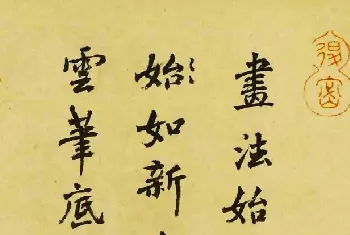 畫法始
始如新
雲筆底